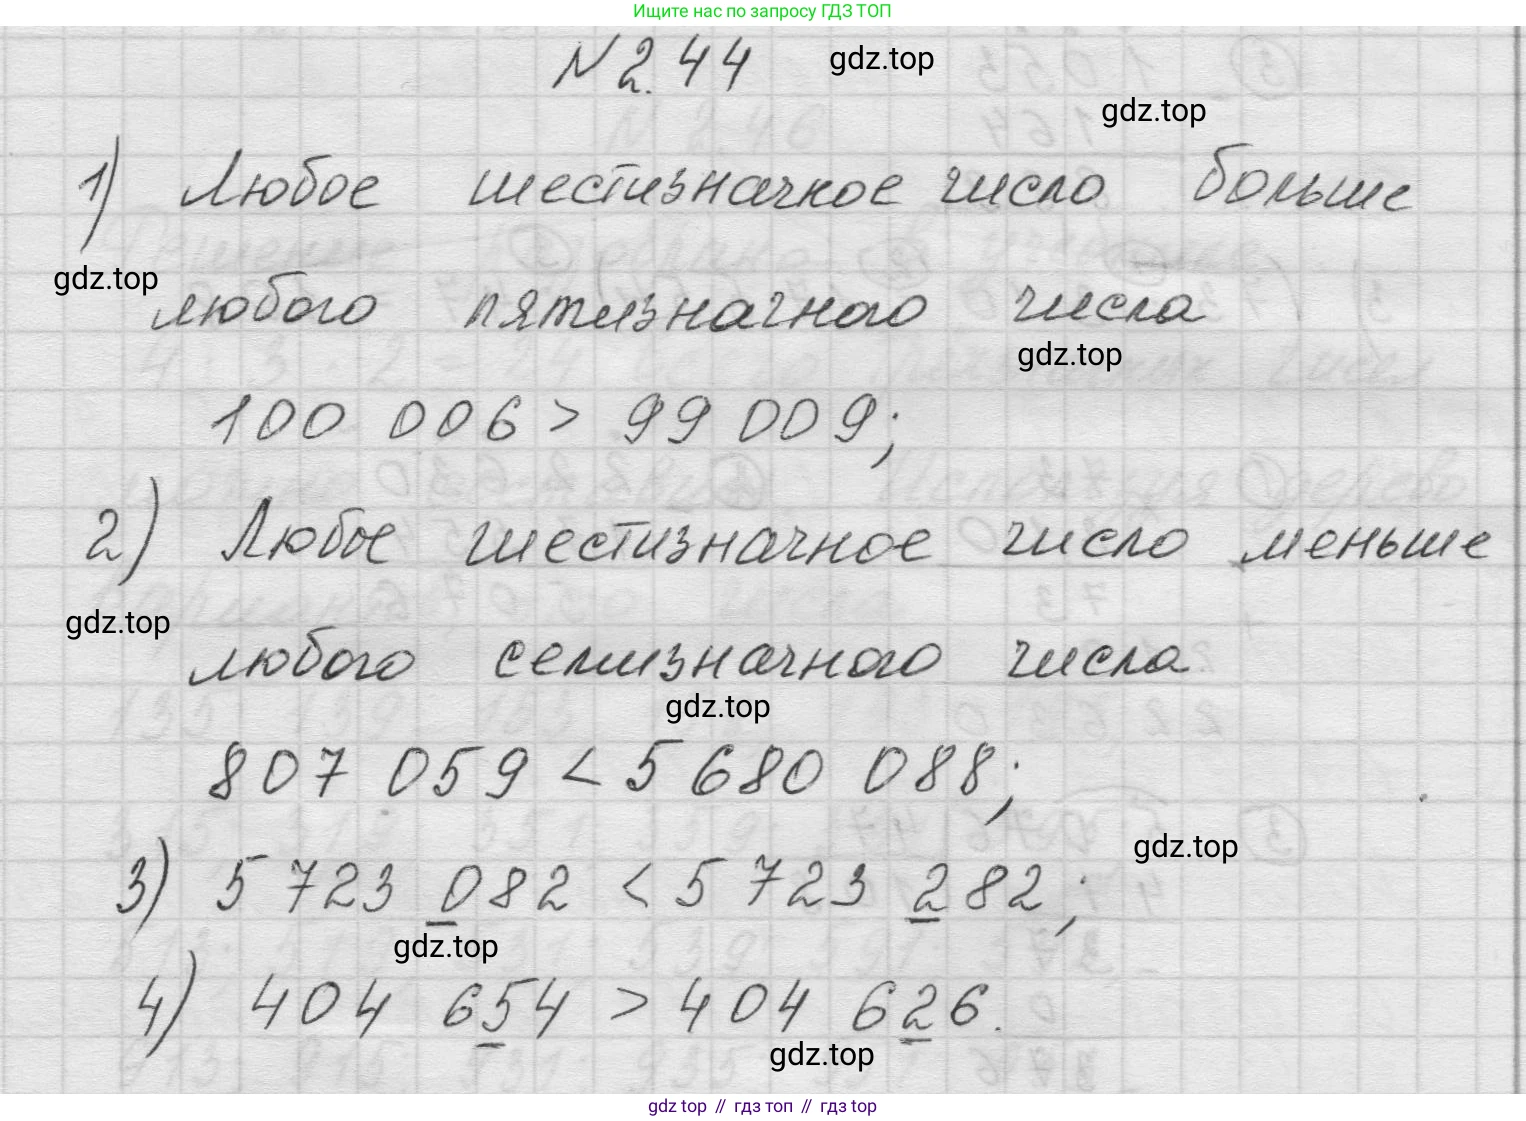 Ищите нас по запросу ГДЗ ТОП
№ 2.44
gdz.top
gdz.top
1) Любое шестизначное число больше
gdz.top
любого пятизначного числа
gdz.top
100 006 > 99 009;
2) Любое шестизначное число меньше
gdz.top
любого семизначного числа
gdz.top
807 059 < 5 680 088;
gdz.top
3) 5 723 082 < 5 723 282;
gdz.top
4) 404 654 > 404 626.
gdz.top
gdz top // гдз топ // гдз top